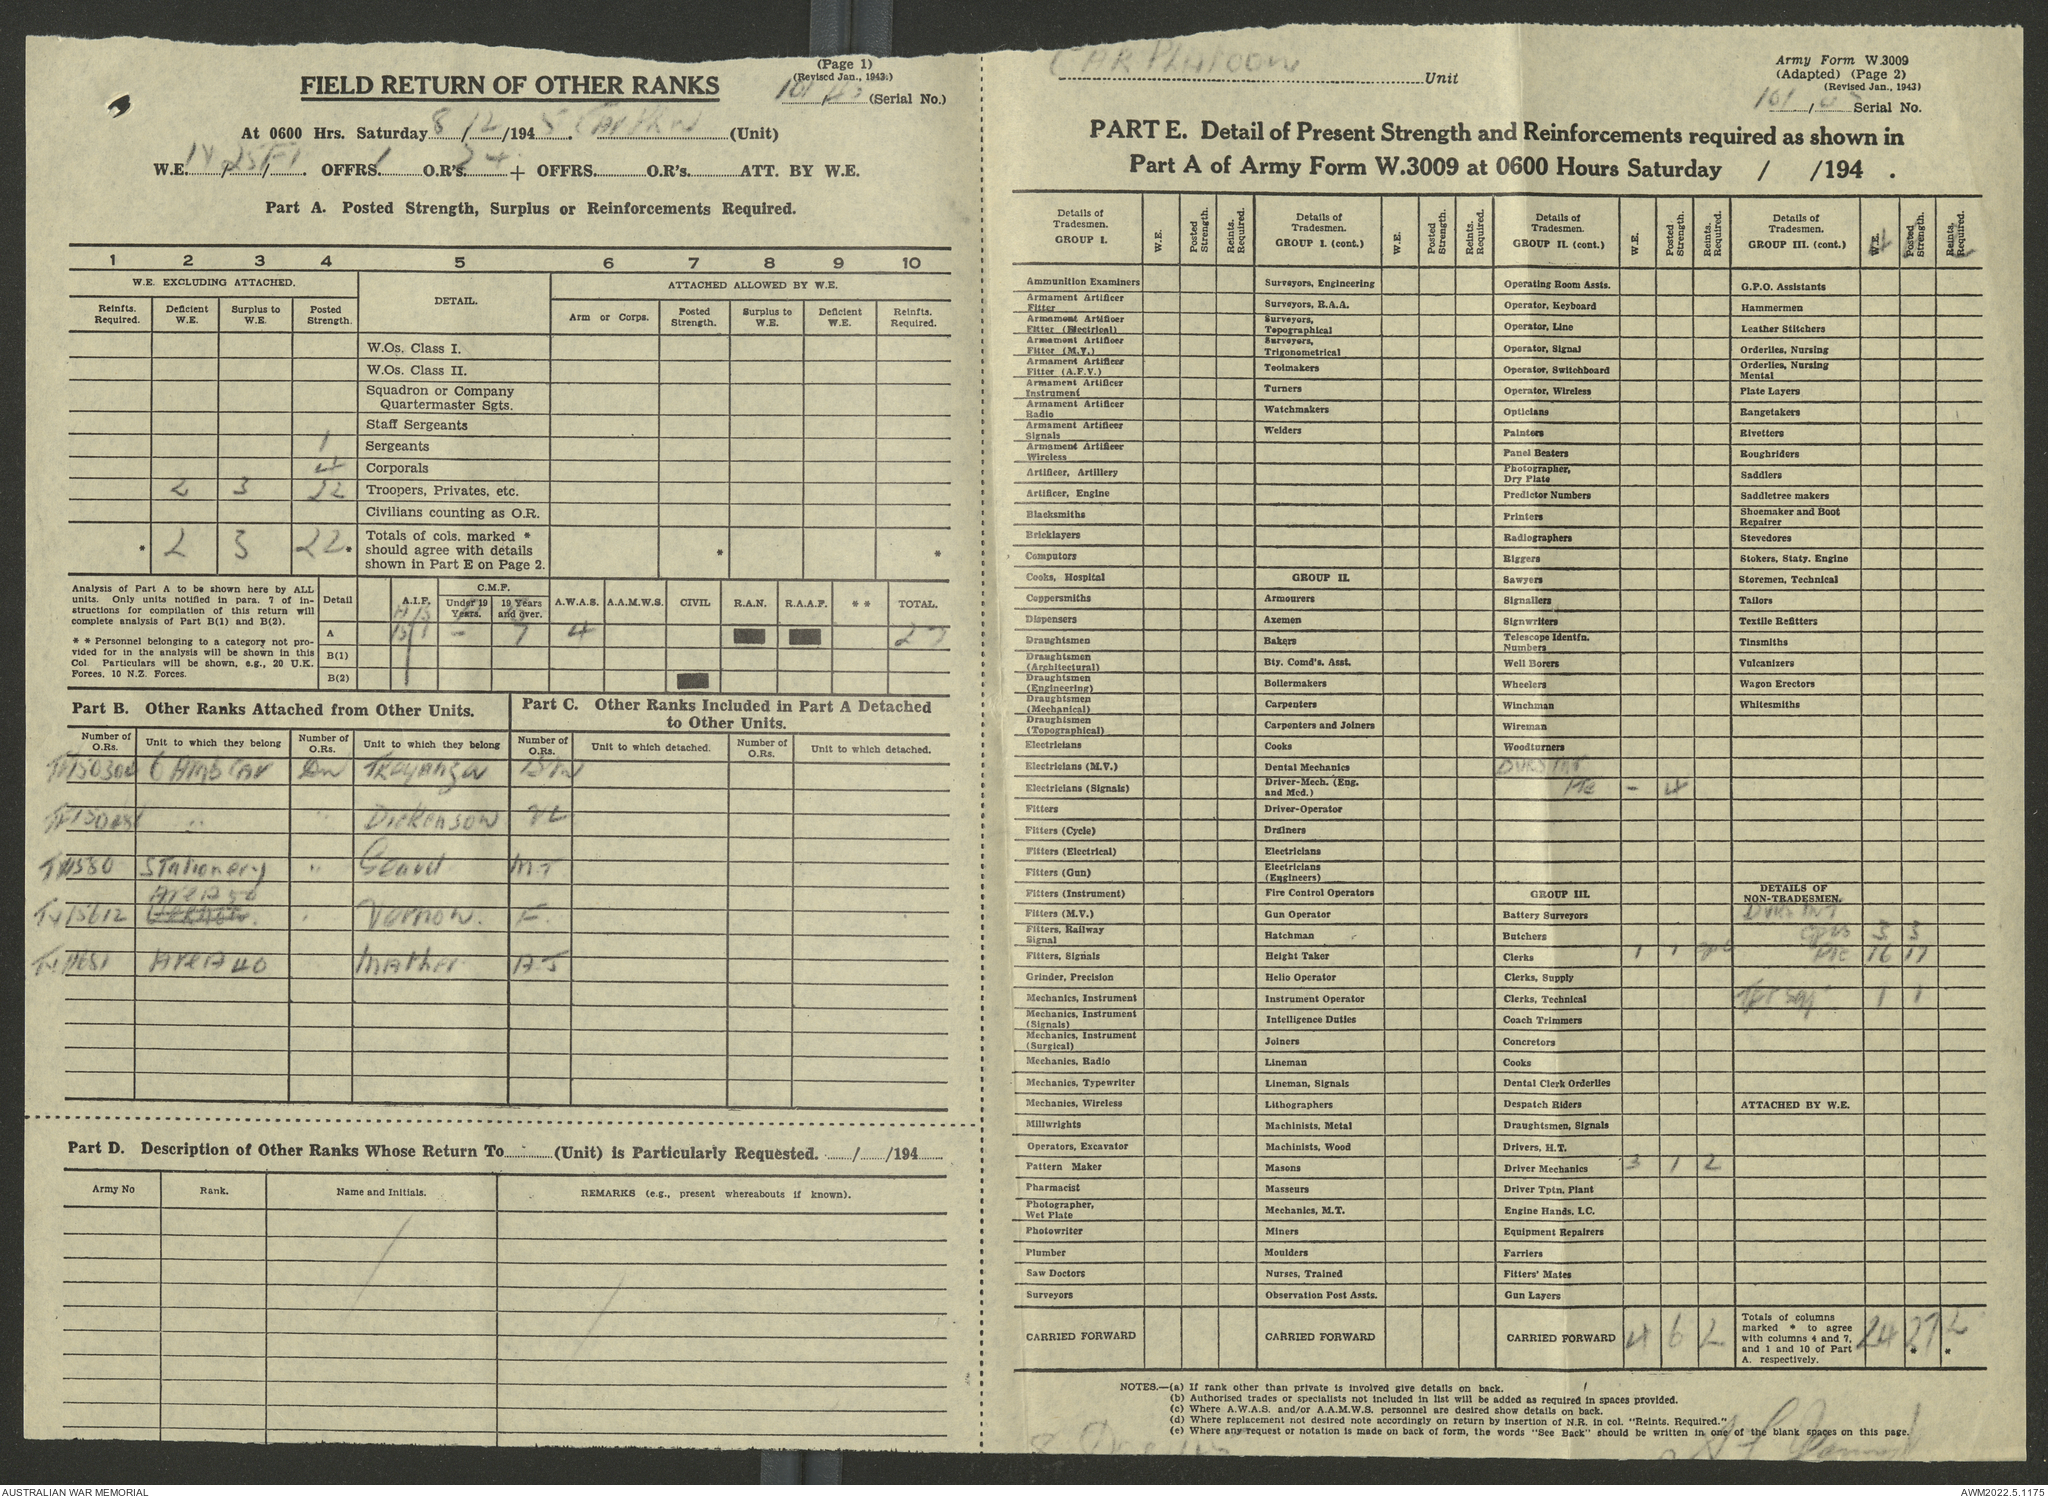 (Page 1)
(Revised Jan., 1943.)
FIELD RETURN OF OTHER RANKS
(Serial No.)
At 0600 Hrs. Saturday 8/12/1945. (Unit)
W.E. / / . OFFRS. 1 O.R's. 24 + OFFRS. O.R's. ATT. BY W.E.
Part A. Posted Strength, Surplus or Reinforcements Required.
1 2 3 4 5 6 7 8 9 10
W.E. EXCLUDING ATTACHED.
DETAIL.
ATTACHED ALLOWED BY W.E.
Reinfts. Required.
Deficient W.E.
Surplus to W.E.
Posted Strength.
Arm or Corps.
Posted Strength.
Surplus to W.E.
Deficient W.E.
Reinfts. Required.
W.Os. Class I.
W.Os. Class II.
Squadron or Company
Quartermaster Sgts.
Staff Sergeants
1 Sergeants
4 Corporals
2 3 22 Troopers, Privates, etc.
Civilians counting as O.R.
* 2 3 22 *
Totals of cols. marked *
should agree with details
shown in Part E on Page 2.
* *
Analysis of Part A to be shown here by ALL
units. Only units notified in para. 7 of in-
structions for compilation of this return will
complete analysis of Part B(1) and B(2).
* * Personnel belonging to a category not pro-
vided for in the analysis will be shown in this
Col. Particulars will be shown, e.g., 20 U.K.
Forces, 10 N.Z. Forces.
Detail
A.I.F.
C.M.F.
Under 19 Years.
19 Years and over.
A.W.A.S.
A.A.M.W.S.
CIVIL
R.A.N.
R.A.A.F.
* *
TOTAL.
A - 7 4 27
B(1)
B(2)
Part B. Other Ranks Attached from Other Units.
Part C. Other Ranks Included in Part A Detached
to Other Units.
Number of O.Rs.
Unit to which they belong
Number of O.Rs.
Unit to which they belong
Number of O.Rs.
Unit to which detached.
Number of O.Rs.
Unit to which detached.
6 Amb Car
Dickenson
Stationery
Area 50
Vernon. F.
Area 40 Mather A J
Part D. Description of Other Ranks Whose Return To (Unit) is Particularly Requested. / /194
Army No
Rank.
Name and Initials.
REMARKS (e.g., present whereabouts if known).
CAR PLATOON Unit
Army Form W.3009
(Adapted) (Page 2)
(Revised Jan., 1943)
Serial No.
PART E. Detail of Present Strength and Reinforcements required as shown in
Part A of Army Form W.3009 at 0600 Hours Saturday / /194 .
Details of Tradesmen. GROUP I.
W.E.
Posted Strength.
Reints. Required.
Ammunition Examiners
Armament Artificer Fitter
Armament Artificer Fitter (Electrical)
Armament Artificer Fitter (M.V.)
Armament Artificer Fitter (A.F.V.)
Armament Artificer Instrument
Armament Artificer Radio
Armament Artificer Signals
Armament Artificer Wireless
Artificer, Artillery
Artificer, Engine
Blacksmiths
Bricklayers
Computors
Cooks, Hospital
Coppersmiths
Dispensers
Draughtsmen
Draughtsmen (Architectural)
Draughtsmen (Engineering)
Draughtsmen (Mechanical)
Draughtsmen (Topographical)
Electricians
Electricians (M.V.)
Electricians (Signals)
Fitters
Fitters (Cycle)
Fitters (Electrical)
Fitters (Gun)
Fitters (Instrument)
Fitters (M.V.)
Fitters, Railway Signal
Fitters, Signals
Grinder, Precision
Mechanics, Instrument
Mechanics, Instrument (Signals)
Mechanics, Instrument (Surgical)
Mechanics, Radio
Mechanics, Typewriter
Mechanics, Wireless
Millwrights
Operators, Excavator
Pattern Maker
Pharmacist
Photographer, Wet Plate
Photowriter
Plumber
Saw Doctors
Surveyors
CARRIED FORWARD
Details of Tradesmen. GROUP I. (cont.)
W.E.
Posted Strength.
Reints. Required.
Surveyors, Engineering
Surveyors, R.A.A.
Surveyors, Topographical
Surveyors, Trigonometrical
Toolmakers
Turners
Watchmakers
Welders
GROUP II.
Armourers
Axemen
Bakers
Bty. Comd's. Asst.
Boilermakers
Carpenters
Carpenters and Joiners
Cooks
Dental Mechanics
Driver-Mech. (Eng. and Mcd.)
Driver-Operator
Drainers
Electricians
Electricians (Engineers)
Fire Control Operators
Gun Operator
Hatchman
Height Taker
Helio Operator
Instrument Operator
Intelligence Duties
Joiners
Lineman
Lineman, Signals
Lithographers
Machinists, Metal
Machinists, Wood
Masons
Masseurs
Mechanics, M.T.
Miners
Moulders
Nurses, Trained
Observation Post Assts.
CARRIED FORWARD
Details of Tradesmen. GROUP II. (cont.)
W.E.
Posted Strength.
Reints. Required.
Operating Room Assts.
Operator, Keyboard
Operator, Line
Operator, Signal
Operator, Switchboard
Operator, Wireless
Opticians
Painters
Panel Beaters
Photographer, Dry Plate
Predictor Numbers
Printers
Radiographers
Riggers
Sawyers
Signallers
Signwriters
Telescope Identfn. Numbers
Well Borers
Wheelers
Winchman
Wireman
Woodturners
Pte - 4
GROUP III.
Battery Surveyors
Butchers
Clerks 1 1
Clerks, Supply
Clerks, Technical
Coach Trimmers
Concretors
Cooks
Dental Clerk Orderlies
Despatch Riders
Draughtsmen, Signals
Drivers, H.T.
Driver Mechanics 3 1 2
Driver Tptn. Plant
Engine Hands, I.C.
Equipment Repairers
Farriers
Fitters' Mates
Gun Layers
CARRIED FORWARD 4 6 2
Details of Tradesmen. GROUP III. (cont.)
W.E.
Posted Strength.
Reints. Required.
G.P.O. Assistants
Hammermen
Leather Stitchers
Orderlies, Nursing
Orderlies, Nursing Mental
Plate Layers
Rangetakers
Rivetters
Roughriders
Saddlers
Saddletree makers
Shoemaker and Boot Repairer
Stevedores
Stokers, Staty. Engine
Storemen, Technical
Tailors
Textile Refitters
Tinsmiths
Vulcanizers
Wagon Erectors
Whitesmiths
DETAILS OF NON-TRADESMEN.
Cpls 3 3
Pte 16 17
1 1
ATTACHED BY W.E.
Totals of columns marked * to agree with columns 4 and 7, and 1 and 10 of Part A. respectively. 24 27 * 2 *
NOTES.—(a) If rank other than private is involved give details on back.
(b) Authorised trades or specialists not included in list will be added as required in spaces provided.
(c) Where A.W.A.S. and/or A.A.M.W.S. personnel are desired show details on back.
(d) Where replacement not desired note accordingly on return by insertion of N.R. in col. "Reints. Required."
(e) Where any request or notation is made on back of form, the words "See Back" should be written in one of the blank spaces on this page.
AUSTRALIAN WAR MEMORIAL
AWM2022.5.1175